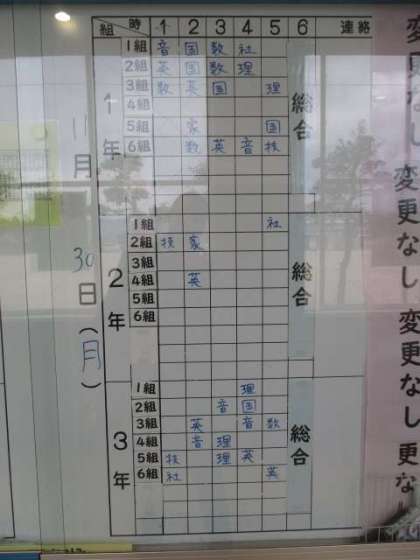 組 時 1 2 3 4 5 6 連絡
11月30日(月)
1年
1組 音 国 数 社
2組 英 国 数 理
3組 数 英 国 理
4組
5組 家 国
6組 数 英 音 技
総合
2年
1組 社
2組 技 家
3組
4組 英
5組
6組
総合
3年
1組 理
2組 音 国
3組 英 音 数
4組 音 理
5組 技 理 英
6組 社 英
総合
変更なし変更なし変更なし